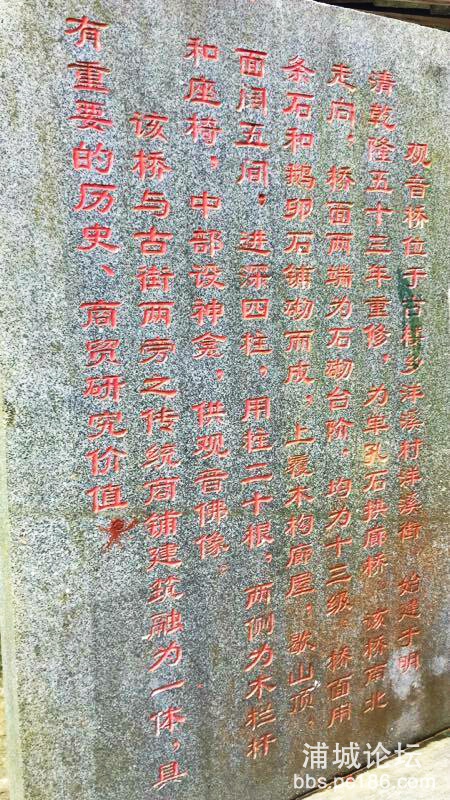 观音桥位于古楼乡洋溪村洋溪街，始建于明，
清乾隆五十三年重修，为单孔石拱廊桥。该桥南北
走向，桥面两端为石砌台阶，均为十三级。桥面用
条石和鹅卵石铺砌而成，上覆木构廊屋，歇山顶，
面阔五间，进深四柱，用柱二十根，两侧为木栏杆
和座椅，中部设神龛，供观音佛像。
该桥与古街两旁之传统商铺建筑融为一体，具
有重要的历史、商贸研究价值
浦城论坛
bbs.pc186.com